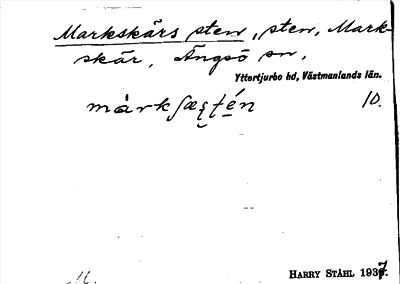 Markskärs sten, sten, Mark-
skär, Ängsö sn,
Yttertjurbo hd, Västmanlands län.
10.
HARRY STÅHL 1937.
M.